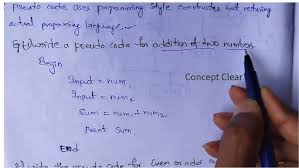 Pseudo code uses programming style constructs but retaining
actual programing language.
Q1) write a pseudo code for addition of two numbers
Begin
Input = num1
Input = num2
Sum = num1 + num2
Print Sum
End
Concept Clear
write the pseudo code for Even or odd